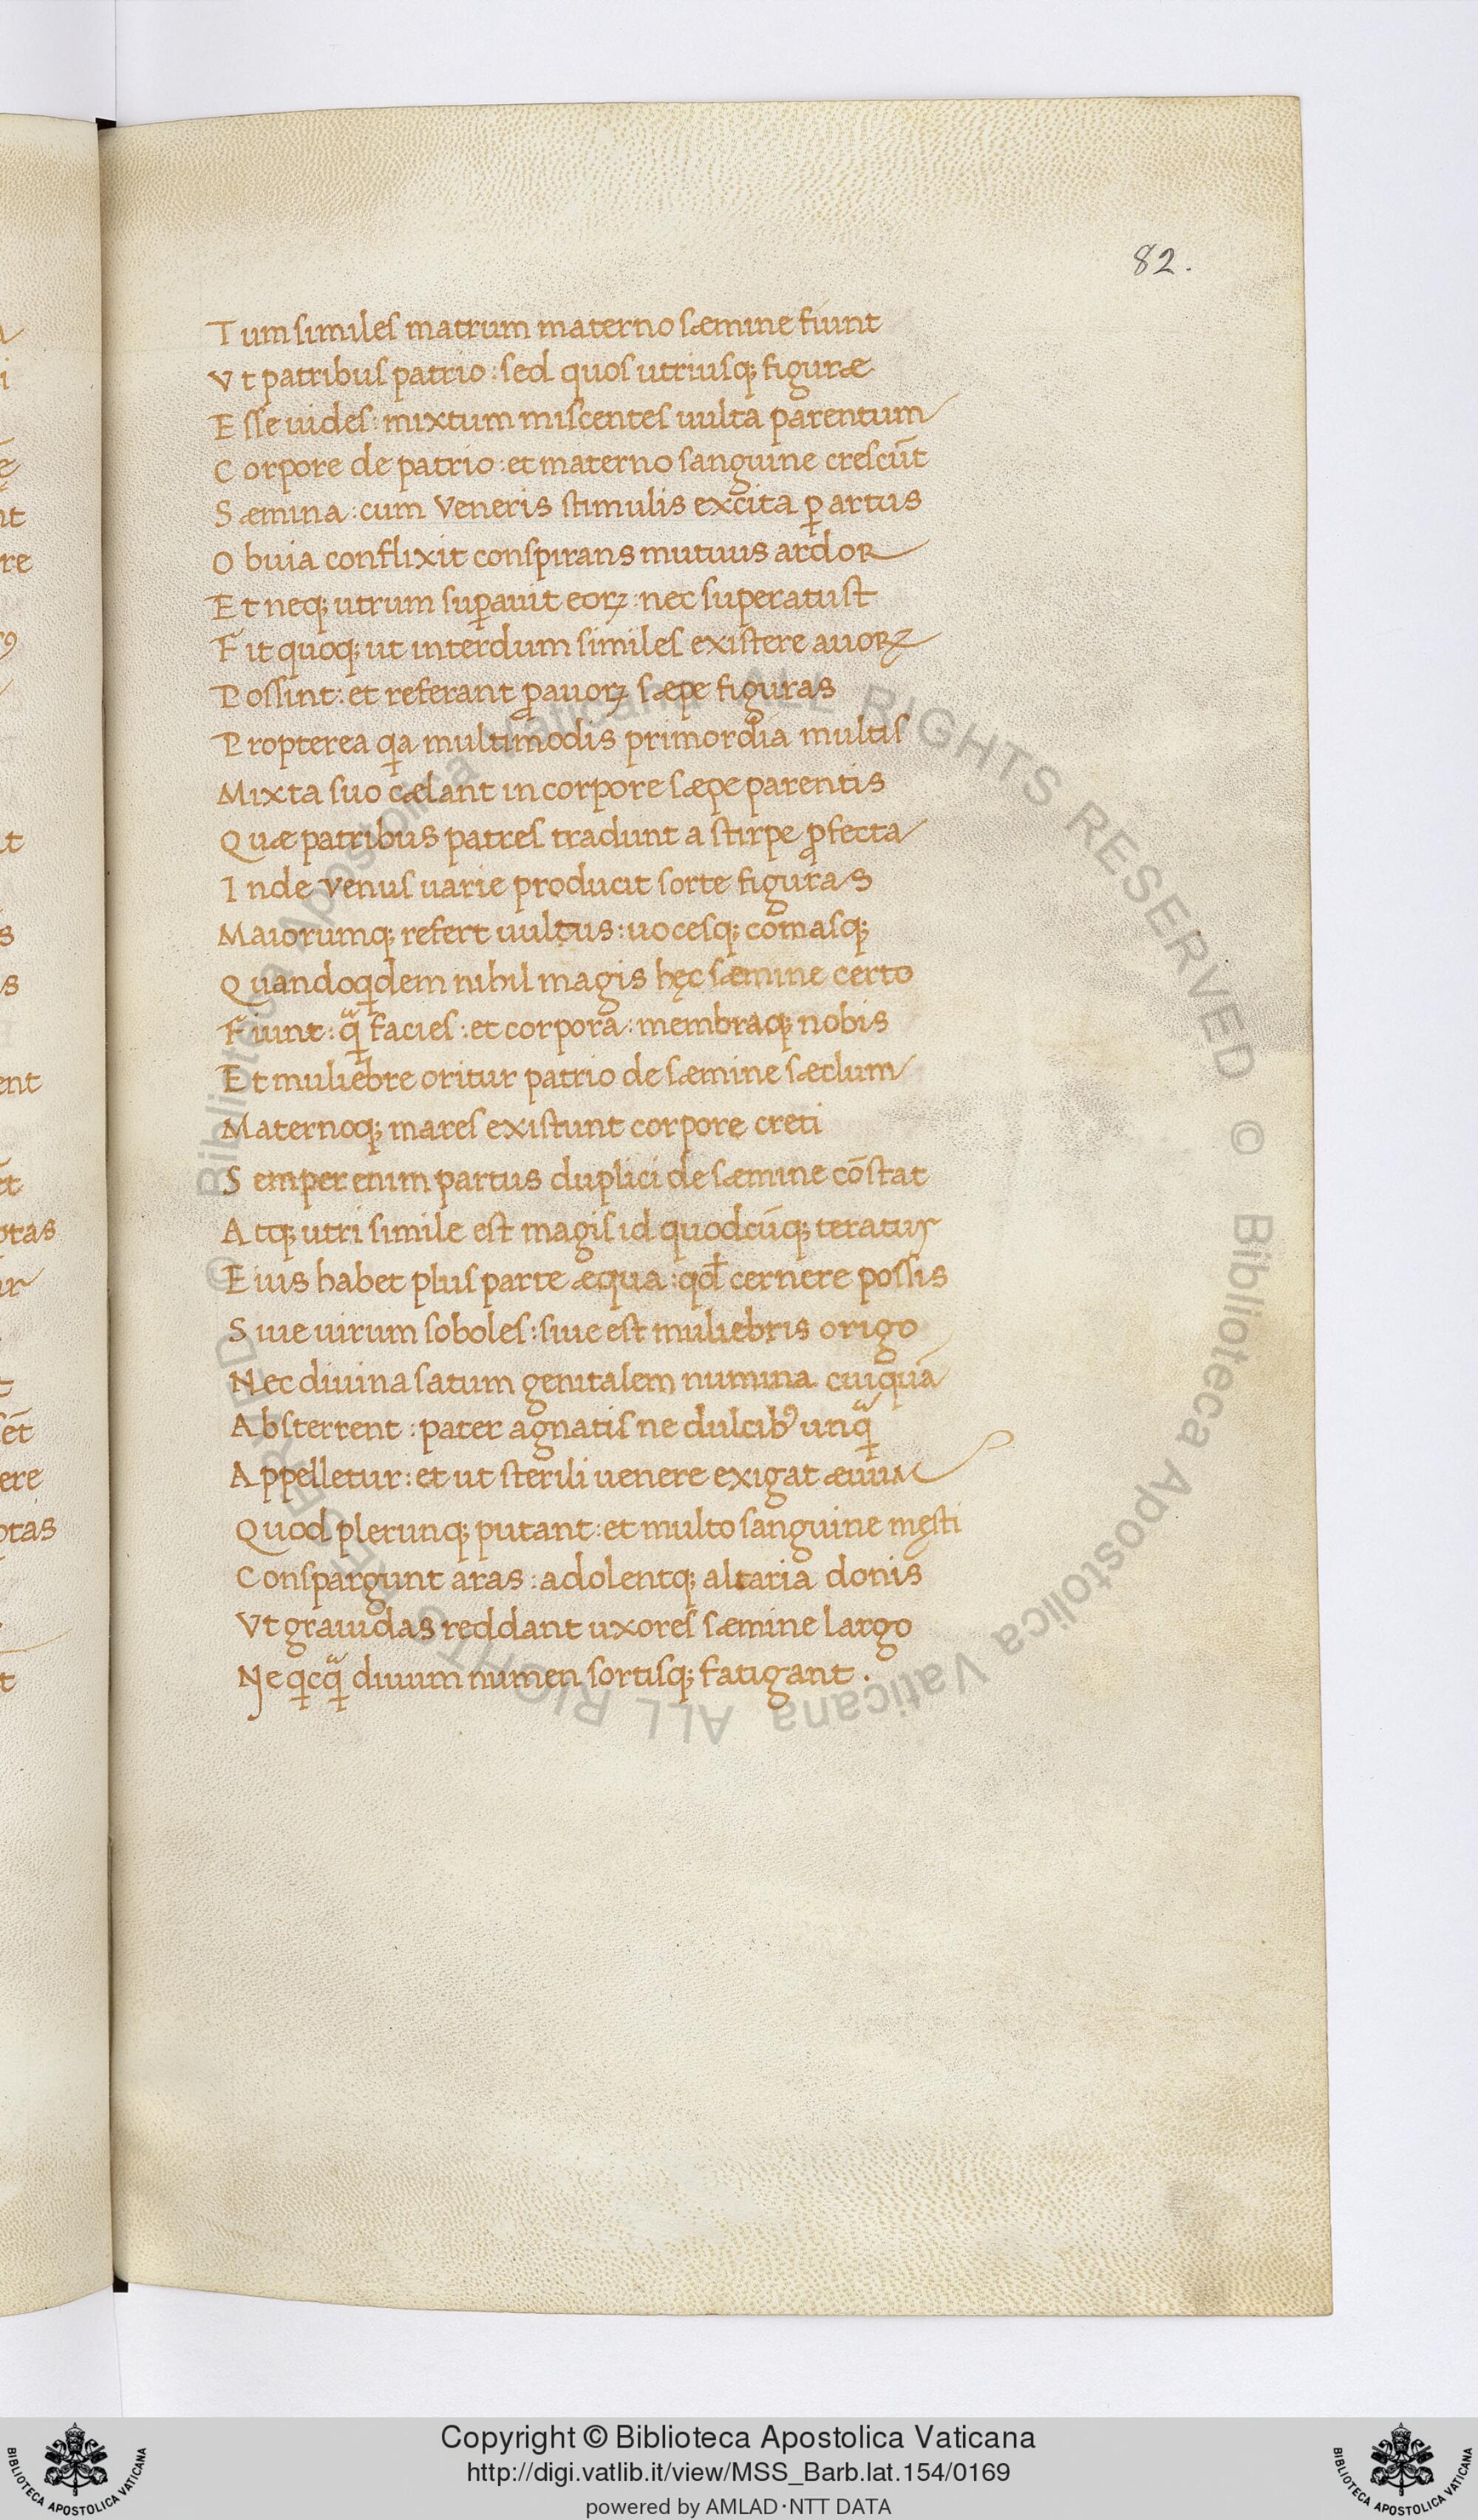 82.
Tum similes matrum materno sæmine fiunt
Vt patribus patrio: sed quos utriusq; figuræ
Esse uides: mixtum miscentes uulta parentum
Corpore de patrio: et materno sanguine crescūt
Sæmina: cum Veneris stimulis excita ꝑ artus
Obuia conflixit conspirans mutuus ardor
Et neq; utrum suꝑauit eoꝝ: nec superatust
Fit quoq; ut interdum similes existere auoꝝ
Possint: et referant ꝓauoꝝ sæpe figuras
Propterea qa multimodis primordia multis
Mixta suo cælant in corpore sæpe parentis
Quæ patribus patres tradunt a stirpe ꝓfecta
Inde Venus uarie producit sorte figuras
Maiorumq; refert uultus: uocesq; comasq;
Quandoqdem nihil magis hęc sæmine certo
Fiunt: qᷓ facies: et corpora: membraq; nobis
Et muliebre oritur patrio de sæmine sæclum
Maternoq; mares existunt corpore creti
Semper enim partus duplici de sæmine cōstat
Atq; utri simile est magis id quodcūq; teratur
Eius habet plus parte æqua: qđ cernere possis
Siue uirum soboles: siue est muliebris origo
Nec diuina satum genitalem numina cuiquā
Absterrent: pater agnatis ne dulcibꝰ unqᷓ
Appelletur: et ut sterili uenere exigat æuum
Quod plerunq; putant: et multo sanguine męsti
Conspargunt aras: adolentq; altaria donis
Vt grauidas reddant uxores sæmine largo
Neqcqᷓ diuum numen sortisq; fatigant.
© Biblioteca Apostolica Vaticana ALL RIGHTS RESERVED © Biblioteca Apostolica Vaticana ALL RIGHTS RESERVED
Copyright © Biblioteca Apostolica Vaticana
http://digi.vatlib.it/view/MSS_Barb.lat.154/0169
powered by AMLAD·NTT DATA
BIBLIOTECA APOSTOLICA VATICANA
BIBLIOTECA APOSTOLICA VATICANA